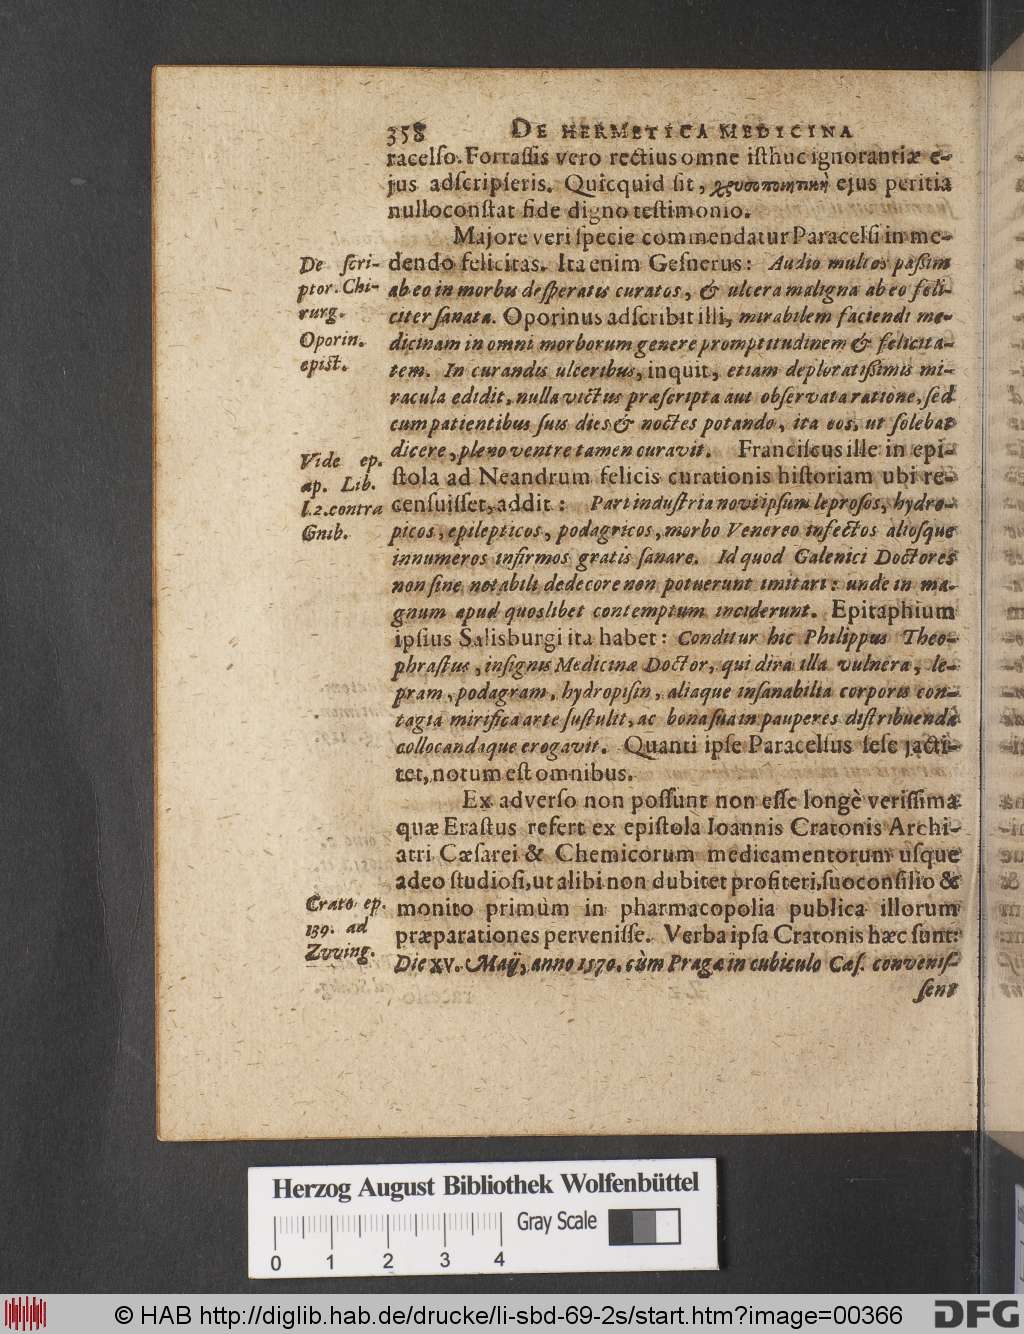 358 DE HERMETICA MEDICINA
racelſo. Fortaſſis vero rectius omne iſthuc ignorantiæ e-
jus adſcripſeris. Quicquid ſit, χρυσοποιητικὴ ejus peritia
nullo conſtat fide digno teſtimonio.
Majore veri ſpecie commendatur Paracelſi in me-
dendo felicitas. Ita enim Geſnerus: Audio multos paßim
ab eo in morbis deſperatis curatos, & ulcera maligna ab eo feli-
citer ſanata. Oporinus adſcribit illi, mirabilem faciendi me-
dicinam in omni morborum genere promptitudinem & felicita-
tem. In curandis ulceribus, inquit, etiam deploratißimis mi-
racula edidit, nulla victus præſcripta aut obſervata ratione, ſed
cum patientibus ſuis dies & noctes potando, ita eos, ut ſolebat
dicere, pleno ventre tamen curavit. Franciſcus ille in epi-
ſtola ad Neandrum felicis curationis hiſtoriam ubi re-
cenſuiſſet, addit: Pari induſtria novi ipſum leproſos, hydro-
picos, epilepticos, podagricos, morbo Venereo infectos alioſque
innumeros infirmos gratis ſanare. Id quod Galenici Doctores
non ſine notabili dedecore non potuerunt imitari: unde in ma-
gnum apud quoslibet contemptum inciderunt. Epitaphium
ipſius Salisburgi ita habet: Conditur hic Philippus Theo-
phraſtus, inſignis Medicinæ Doctor, qui dira illa vulnera, le-
pram, podagram, hydropiſin, aliaque inſanabilia corporis con-
tagia mirifica arte ſuſtulit, ac bona ſua in pauperes diſtribuenda
collocandaque erogavit. Quanti ipſe Paracelſus ſeſe jacti-
tet, notum eſt omnibus.
Ex adverſo non poſſunt non eſſe longè veriſſima
quæ Eraſtus refert ex epiſtola Ioannis Cratonis Archi-
atri Cæſarei & Chemicorum medicamentorum uſque
adeo ſtudioſi, ut alibi non dubitet profiteri, ſuo conſilio &
monito primùm in pharmacopolia publica illorum
præparationes perveniſſe. Verba ipſa Cratonis hæc ſunt:
Die XV. Maij, anno 1570. cùm Pragæ in cubiculo Cæſ. conveniſ-
ſent
De ſcri-
ptor. Chi-
rurg.
Oporin.
epiſt.
Vide ep.
ap. Lib.
l. 2. contra
Gnib.
Crato ep.
139. ad
Zvving.
Herzog August Bibliothek Wolfenbüttel
Gray Scale
0 1 2 3 4
© HAB http://diglib.hab.de/drucke/li-sbd-69-2s/start.htm?image=00366
DFG